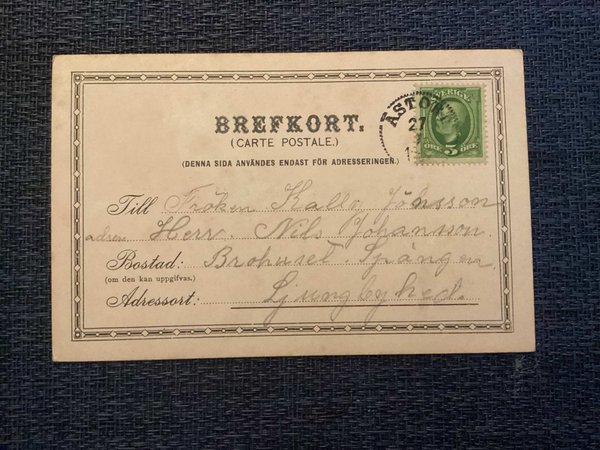 SVERIGE
ÅSTORP
27
5 ÖRE
BREFKORT.
(CARTE POSTALE.)
(DENNA SIDA ANVÄNDES ENDAST FÖR ADRESSERINGEN.)
Till Fröken Kalla Jönsson
adress Herr. Nils Johansson.
Bostad: Brohuset. Spången.
(om den kan uppgifvas.)
Adressort: Ljungbyhed.